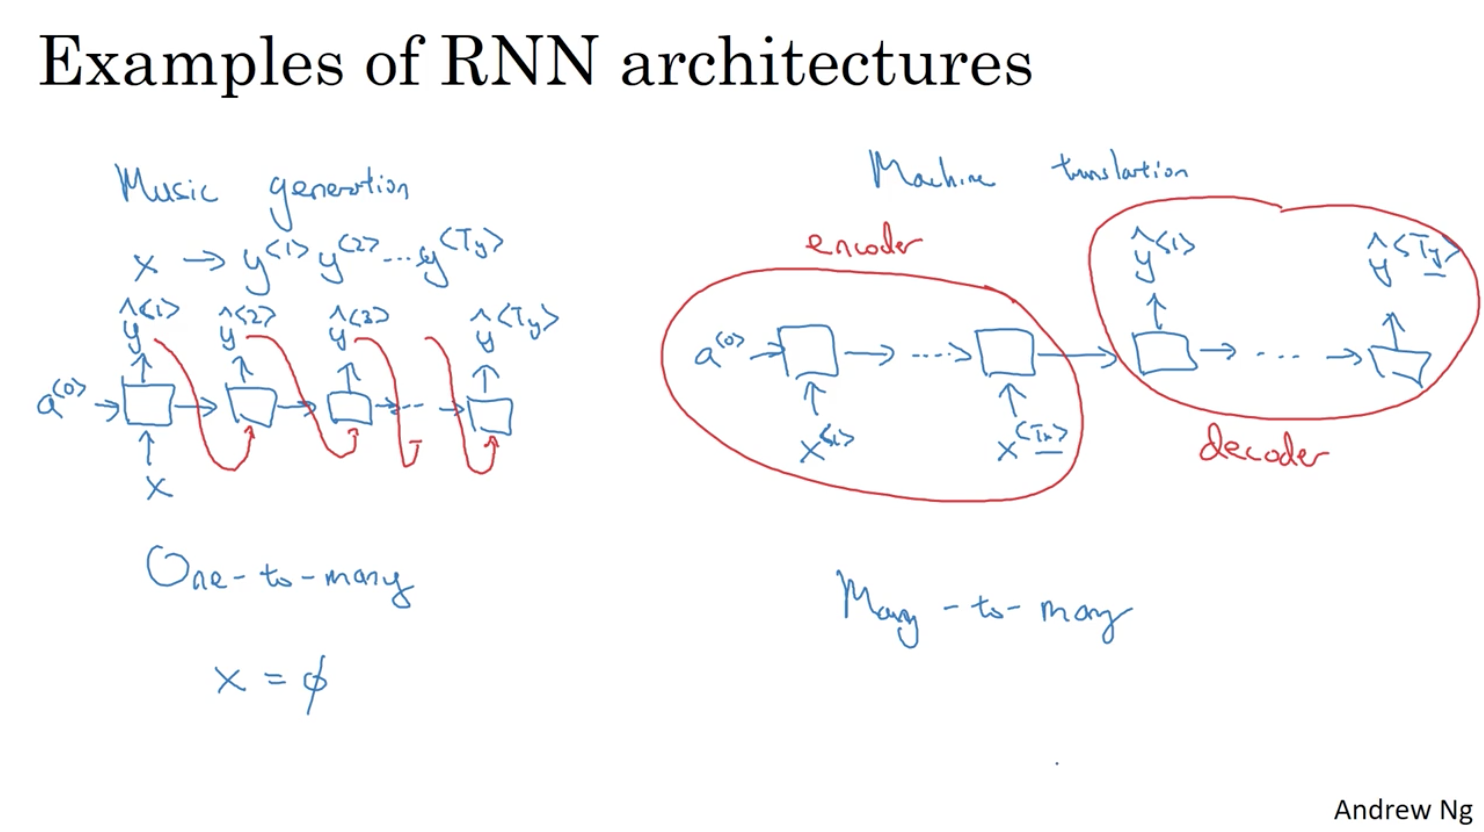 Examples of RNN architectures
Music generation
x → y<1> y<2> ... y<Ty>
ŷ<1> ŷ<2> ŷ<3> ŷ<Ty>
a<0>
x
One-to-many
x = ϕ
Machine translation
encoder
ŷ<1> ŷ<Ty>
a<0> ....
x<1> x<Tx>
decoder
Many-to-many
Andrew Ng